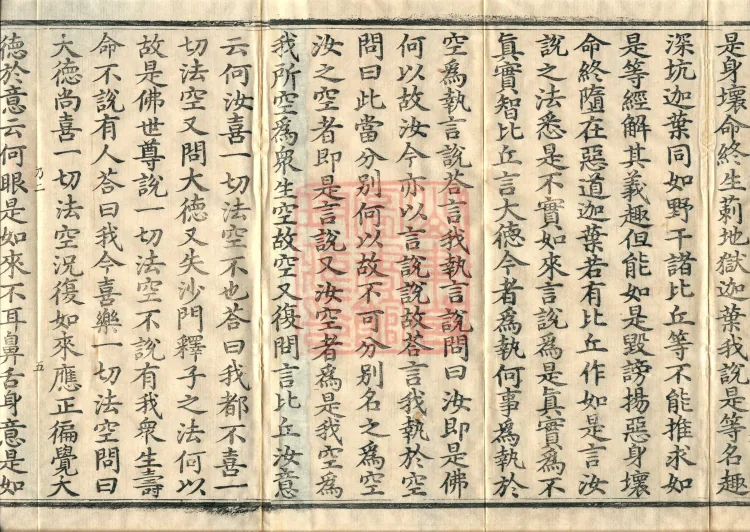 是身壞命終生莿地獄迦葉我說是等名趣
深坑迦葉同如野干諸比丘等不能推求如
是等經解其義趣但能如是毀謗揚惡身壞
命終隨在惡道迦葉若有比丘作如是言汝
說之法悉是不實如來言說為是真實為不
真實智比丘言大德今者為執何事為執於
空為執言說荅言我執言說問曰汝即是佛
何以故汝今亦以言說說故荅言我執於空
問曰此當分别何以故不可分别名之為空
汝之空者即是言說又汝空者為是我空為
我所空為眾生空故空又復問言比丘汝意
云何汝喜一切法空不也荅曰我都不喜一
切法空又問大德又失沙門釋子之法何以
故是佛世尊說一切法空不說有我眾生壽
命不說有人荅曰我今喜樂一切法空問曰
大德尚喜一切法空況復如來應正徧覺大
五
德於意云何眼是如來不耳鼻舌身意是如